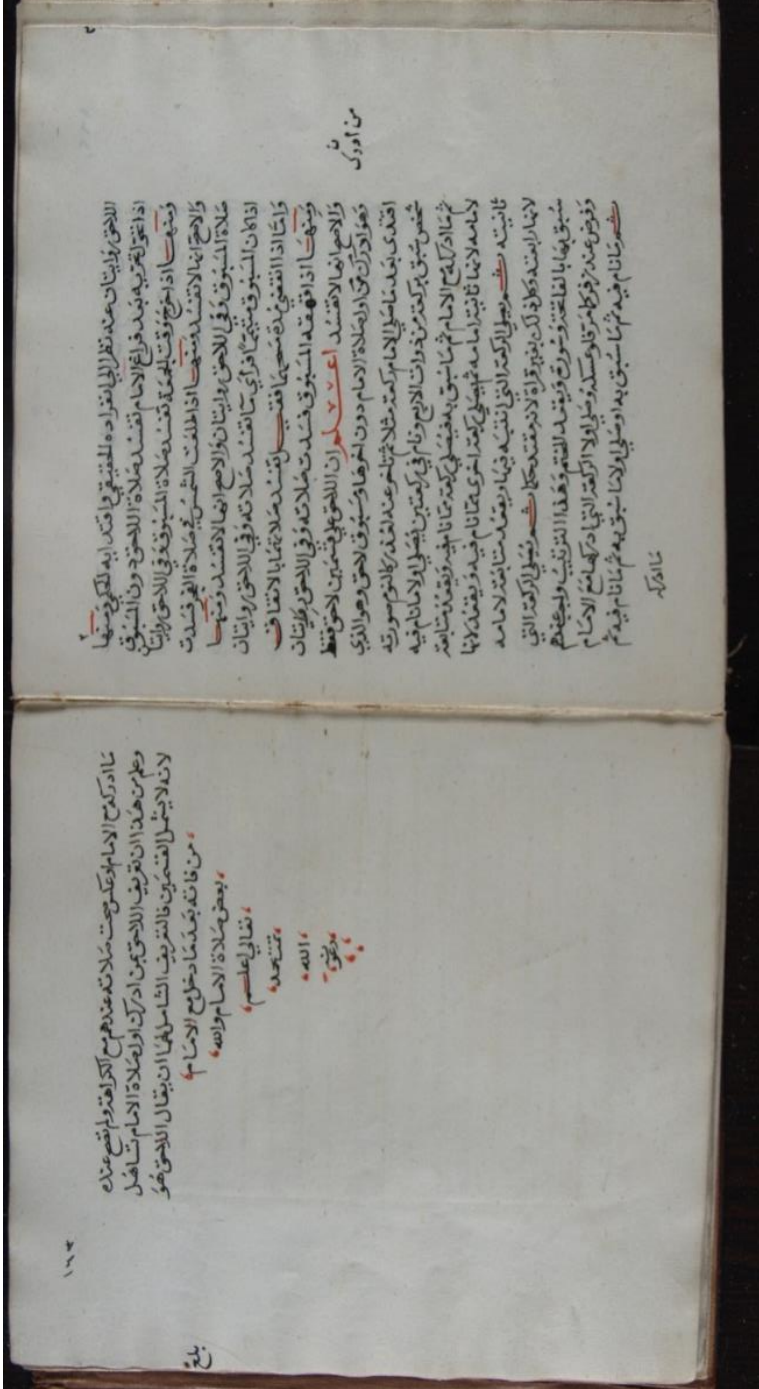 اللاحق روايتان عند نظر الي انفراده الحقيقي واقتدايه الحكمي ومنها
اذا تحريمه بعد فراغ الامام تفسد صلاة اللاحق دون المسبوق
ومنها اذا خرج وقت الجمعة تفسد صلاة المسبوق وفي اللاحق روايتان
والاصح انها لا تفسد ومنها اذا طلعت الشمس في صلاة الفجر فسدت
صلاة المسبوق وفي اللاحق روايتان والاصح انها لا تفسد ومنها
اذا كان المسبوق متيمما فراي ما تفسد صلاته وفي اللاحق روايتان
واما اذا انقضي مدة مسحهما فقيل تفسد صلاتهما بالاتفاق
ومنها اذا قهقه المسبوق فسدت صلاته وفي اللاحق روايتان
والاصح انها لا تفسد اعلم ان اللاحق علي قسمين لاحق فقط
وهو ادرك مع اول صلاة الامام دون اخرها ومسبوق لاحق وهو الذي
من ادرك
اقتدي بعد ما صلي الامام ركعة مثلا ثم تاخر عنه لعذر كالنوم صورته
شخص سبق بركعة من ذوات الاربع ونام في ركعتين يصلي اولا ما نام فيه
ثم ما ادركه مع الامام ثم ما سبق به فيصلي ركعة مما نام فيه ويقعد متابعة
لامامه لانها ثانية امامه ثم يصلي ركعة اخري مما نام فيه ويقعد لانها
ثانيته ثم يصلي الركعة التي انتبه فيها ويقعد متابعة لامامه
لانها رابعته وكل ذلك بغير قراة لانه مقتد حكما ثم يصلي الركعة التي
سبق بها بالفاتحة وسورة ويقعد للختم وهذا الترتيب واجب عندهم
وفرض عند زفر كما مر فلو عكسه وصلي اولا الركعة التي ادركها مع الامام
ثم ما نام فيه ثم ما سبق به او صلي اولا ما سبق به ثم ما نام فيه ثم
ما ادركه
ما ادركه مع الامام او عكس صحت صلاته عندهم مع الكراهة ولم تصح عنده
وعلم من هذا ان تعريف اللاحق بمن ادرك اول صلاة الامام تساهل
لانه لا يشمل القسمين فالتعريف الشامل لهما ان يقال اللاحق هو
من فاته بعد ما دخل مع الامام
بعض صلاة الامام والله
تعالي اعلم
تمت بحمد
الله
وعونه
١٦٣
بلغ